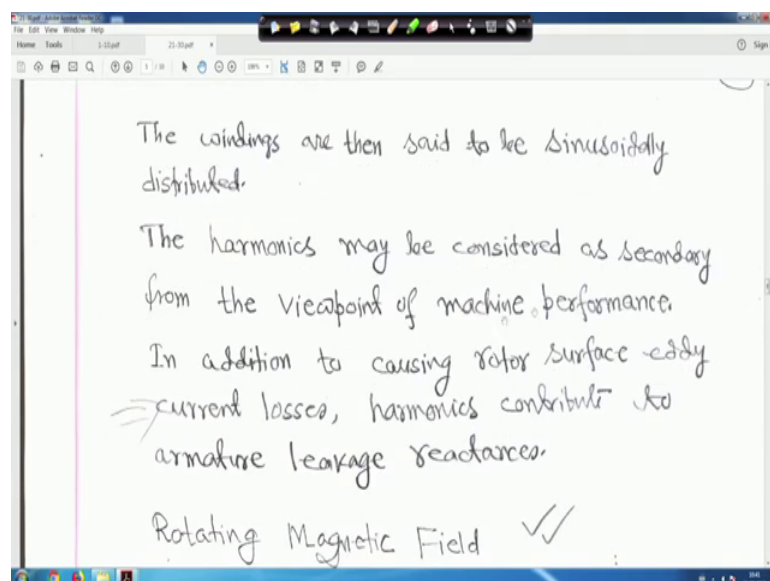 21-30.pdf - Adobe Acrobat Reader DC
File Edit View Window Help
Home Tools 1-10.pdf 21-30.pdf × Sign
The windings are then said to be sinusoidally
distributed.
The harmonics may be considered as secondary
from the viewpoint of machine performance.
In addition to causing rotor surface eddy
current losses, harmonics contribute to
armature leakage reactances.
Rotating Magnetic Field